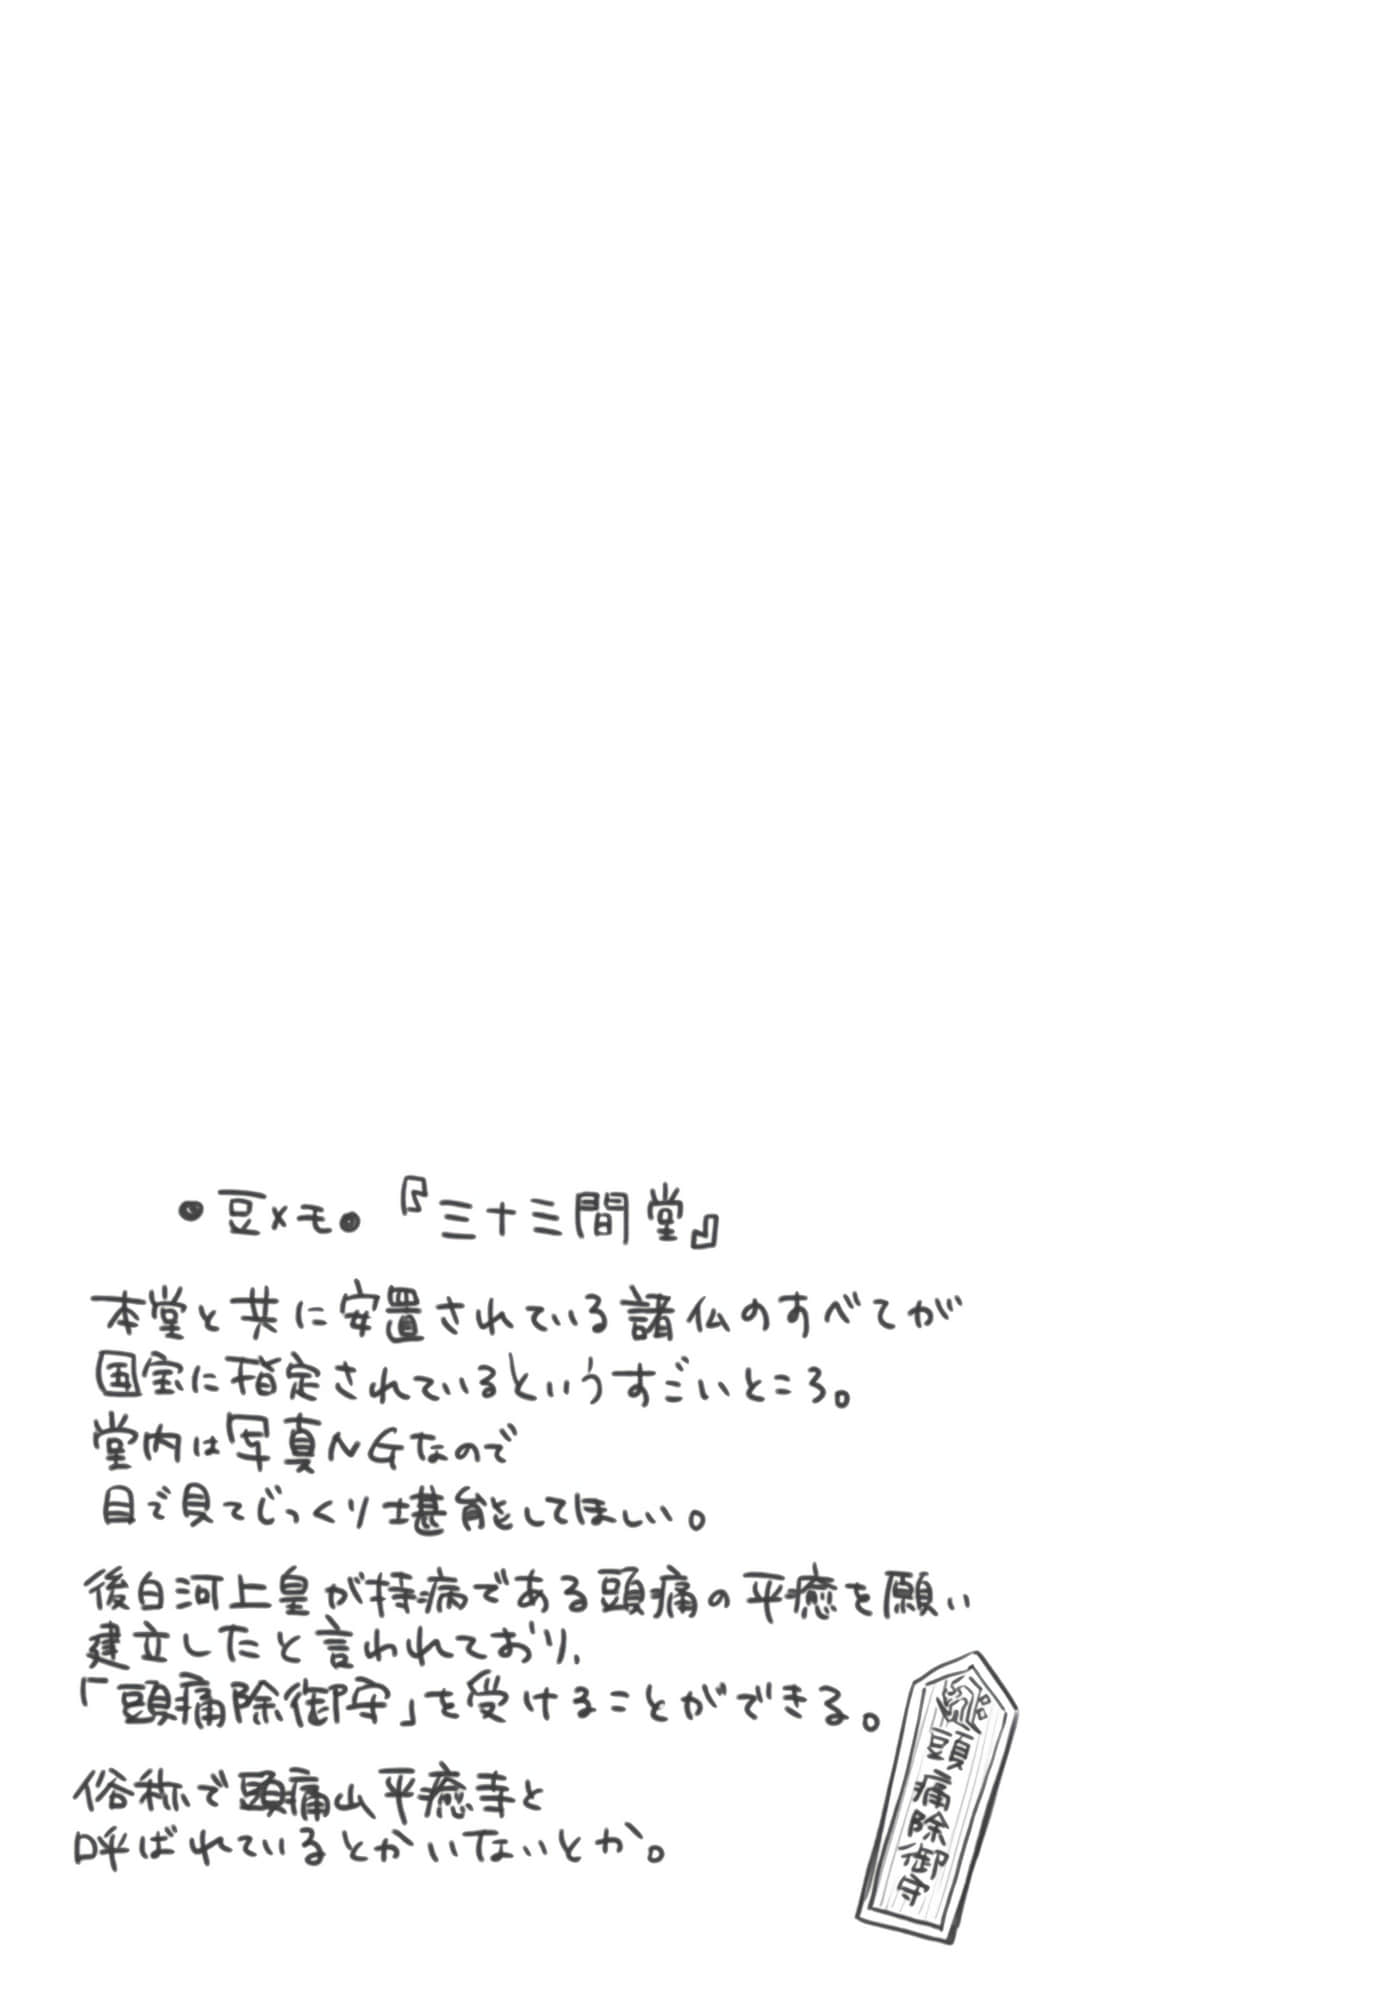 ●豆メモ●『三十三間堂』
本堂と共に安置されている諸仏のすべてが
国宝に指定されているというすごいところ。
堂内は写真NGなので
目で見てじっくり堪能をしてほしい。
後白河上皇が持病である頭痛の平癒を願い
建立したと言われており、
「頭痛除御守」を受けることができる。
俗称で頭痛山平癒寺と
呼ばれているとかいないとか。
頭痛除御守